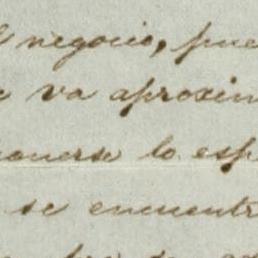 negocio, pue
va aproxim
onerse lo esp
se encuentr